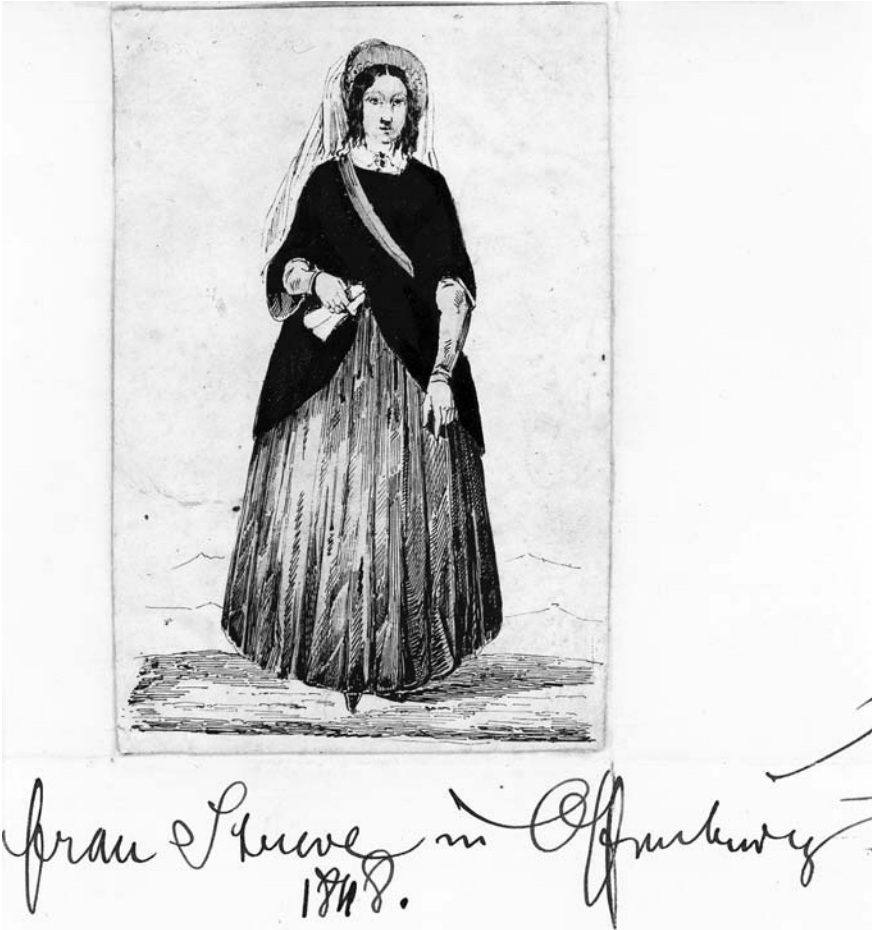 Frau Struve in Offenburg
1848.